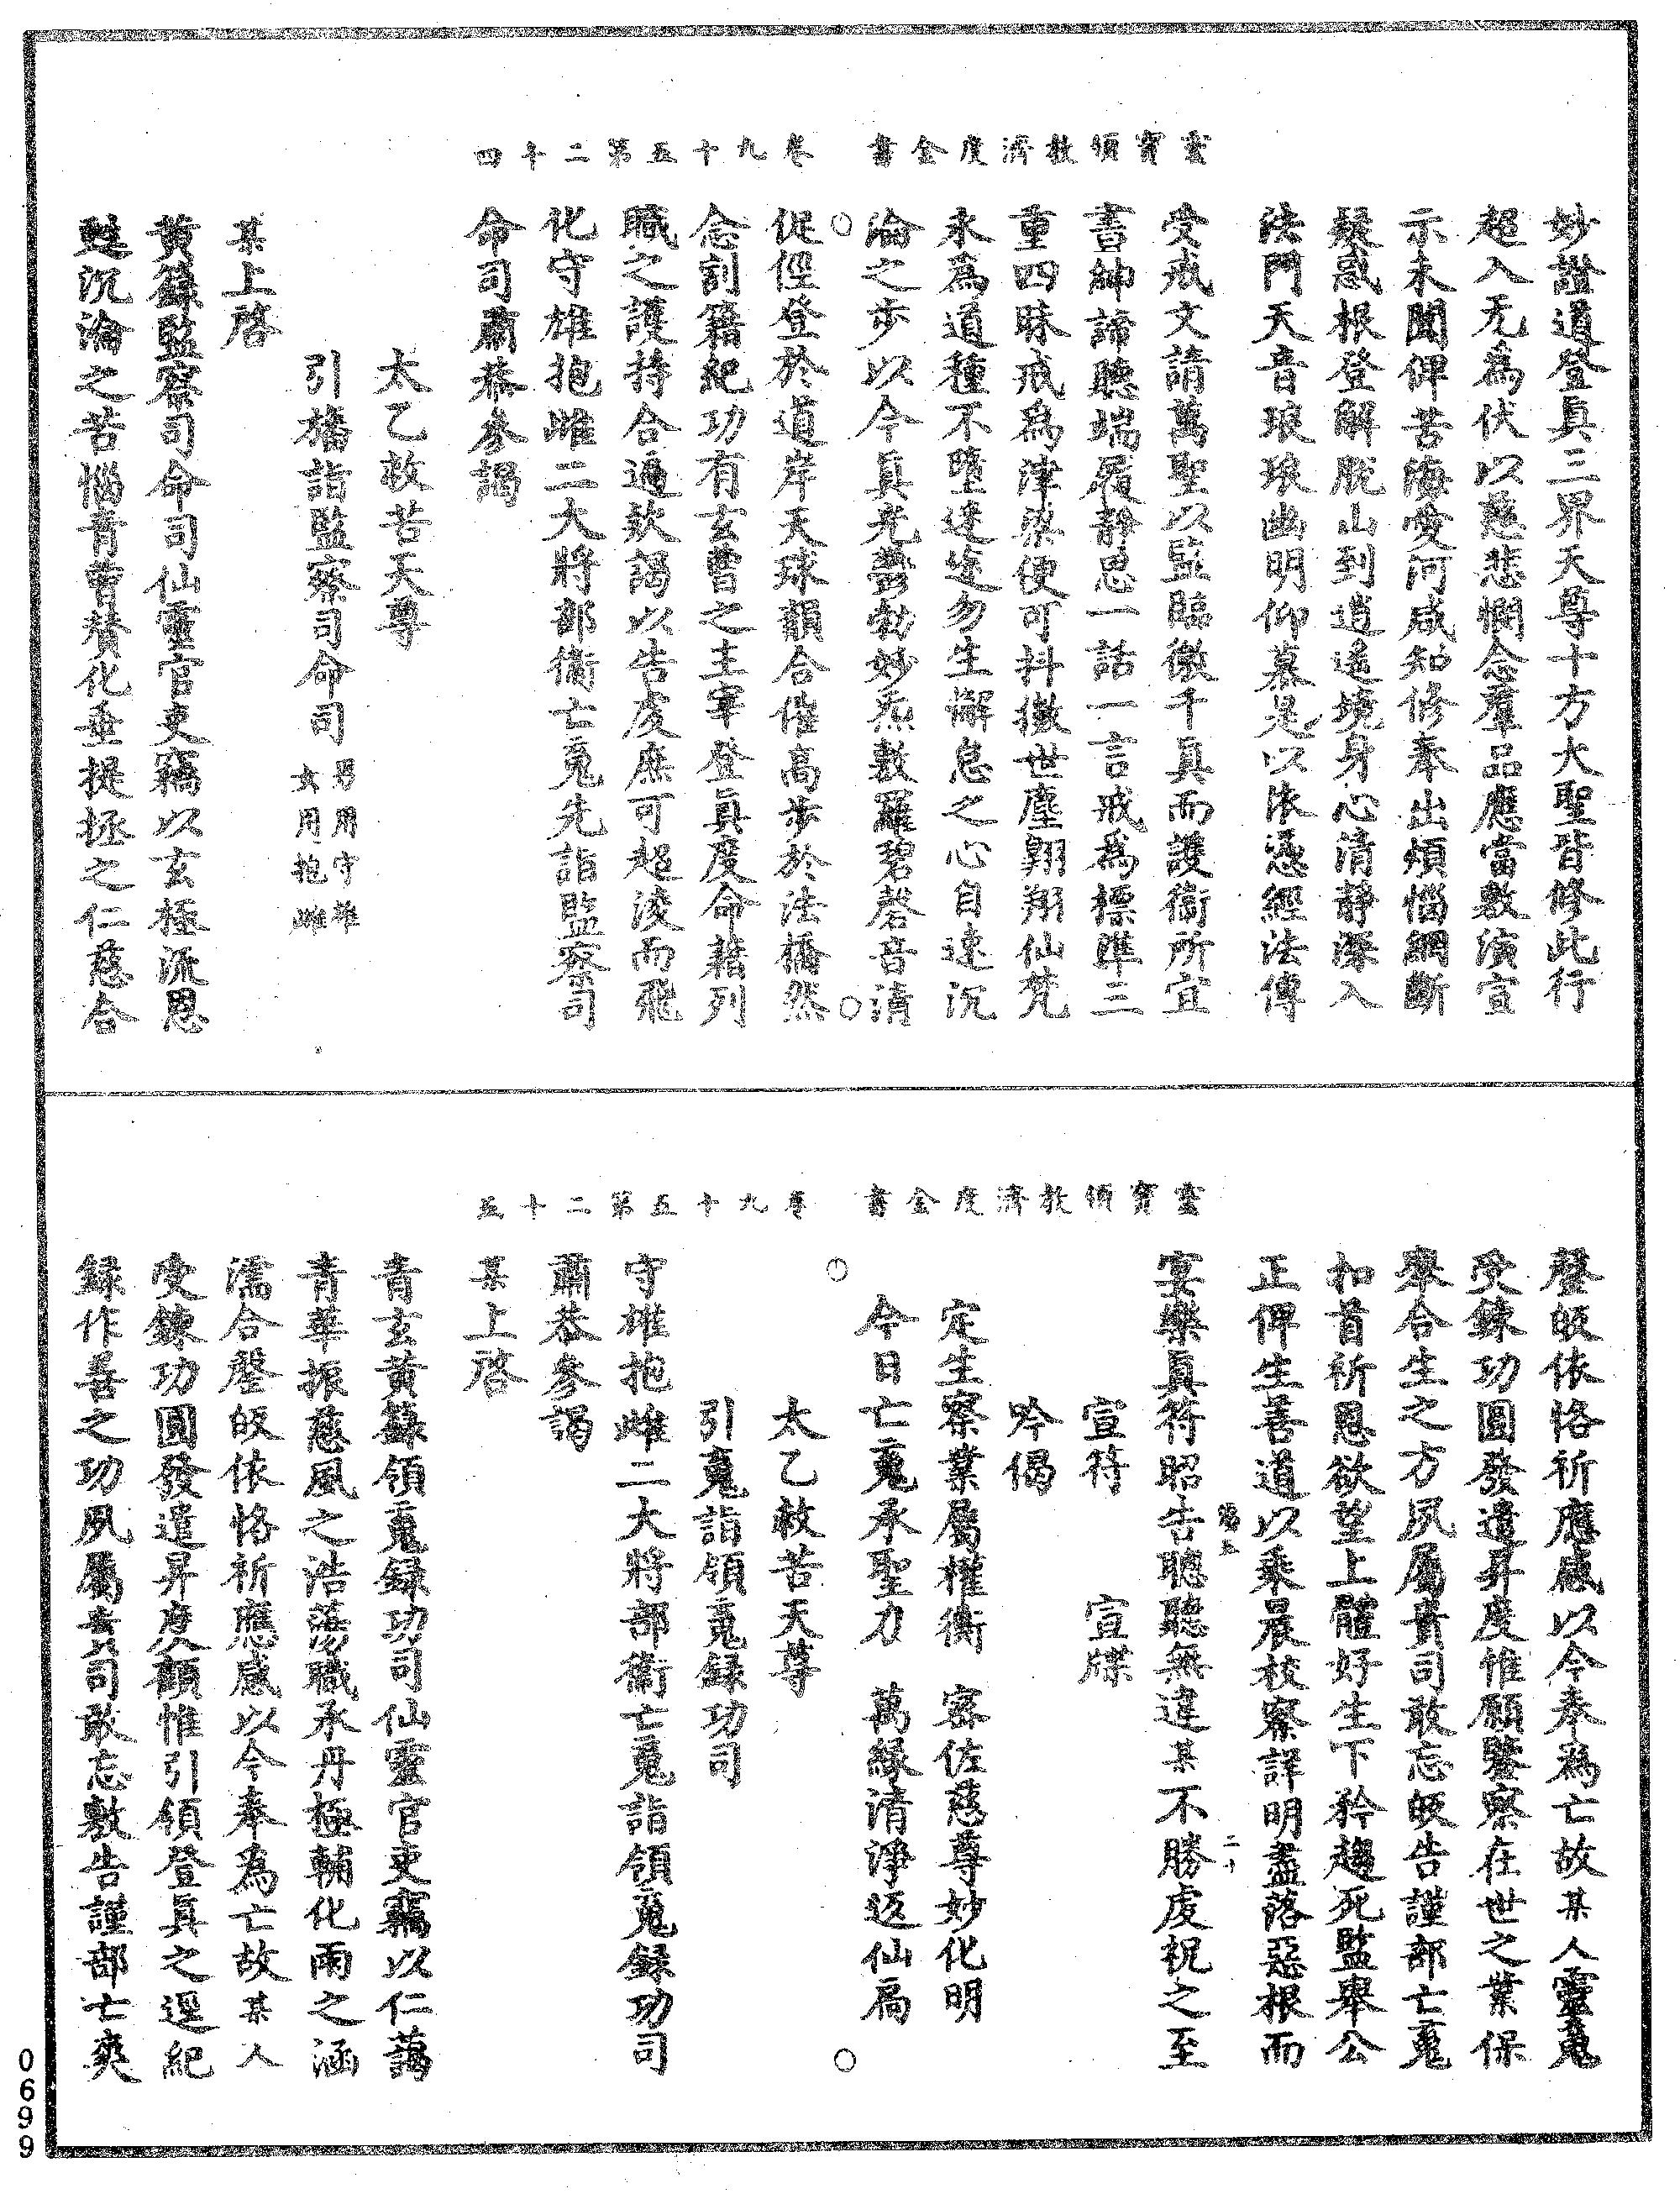 靈寶領教濟度金書　卷九十五第二十四
妙證道登真三界天尊十方大聖皆修此行
超入无爲伏以慈悲憫念羣品應當敷演宣
示未聞俾苦海愛河咸知修奉出煩惱網斷
疑惑根登解脫山到逍遙境身心清靜深入
法門天音琅琅幽明仰慕是以依憑經法傳
受戒文請萬聖以監臨徼千真而護衞所宜
書紳諦聽端履靜思一話一言戒爲標準三
重四昧戒爲津梁便可抖擻世塵翺翔仙梵
永爲道種不墮迷途勿生懈怠之心自速沉
淪之步以今真光鬱勃妙炁敷羅碧磬音清
促俓登於道岸天球韻合催高步於法橋然
念刻籍紀功有玄曹之主宰登真度命藉列
職之護持合遍欵謁以告虔庶可超淩而飛
化守雄抱雌二大將部衞亡䰟先詣監察司
命司肅恭參謁
太乙救苦天尊
引旛詣監察司命司男用守雄
女用抱雌
某上啓
黃籙監察司命司仙靈官吏竊以玄極流恩
甦沉淪之苦惱青曹贊化垂提拯之仁慈合
靈寶領教濟度金書　卷九十五第二十五
磬皈依恪祈應感以今奉爲亡故某人靈䰟
受鍊功圓發遣昇度惟願鑒察在世之業保
舉合生之方夙屬責司敢忘皈告謹部亡䰟
扣首祈恩欲望上體好生下矜趨死監舉公
正俾生善道以乘晨校察詳明盡落惡根而
宴樂真符昭告聰聽無違某不勝虔祝之至
二十
宣符　宣牒
吟偈
定生察業屬權衡　密佐慈尊妙化明
今日亡䰟承聖力　萬緣清淨返仙扃
太乙救苦天尊
引䰟詣領䰟録功司
守雄抱雌二大將部衞亡䰟詣領䰟録功司
肅恭參謁
某上啓
青玄黃籙領䰟録功司仙靈官吏竊以仁藹
青華振慈風之浩蕩職承丹極輔化雨之涵
濡合磬皈依恪祈應感以今奉爲亡故某人
受鍊功圓發遣昇度顧惟引領登真之逕紀
録作善之功夙屬玄司敢忘敷告謹部亡爽
0699